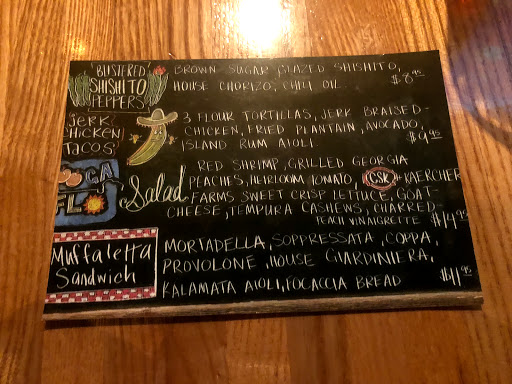 "BLISTERED"
SHISHITO
PEPPERS
BROWN SUGAR GLAZED SHISHITO,
HOUSE CHORIZO, CHILI OIL. $8.95
JERK
CHICKEN
TACOS
3 FLOUR TORTILLAS, JERK BRAISED-
CHICKEN, FRIED PLANTAIN, AVOCADO,
ISLAND RUM AIOLI $9.95
GA
FLO
Salad
RED SHRIMP, GRILLED GEORGIA
PEACHES, HEIRLOOM TOMATO, CSK KAERCHER
FARMS SWEET CRISP LETTUCE, GOAT-
CHEESE, TEMPURA CASHEWS, CHARRED-
PEACH VINAIGRETTE $14.95
Muffaletta
Sandwich
MORTADELLA, SOPPRESSATA, COPPA,
PROVOLONE, HOUSE GIARDINIERA,
KALAMATA AIOLI, FOCACCIA BREAD $11.95